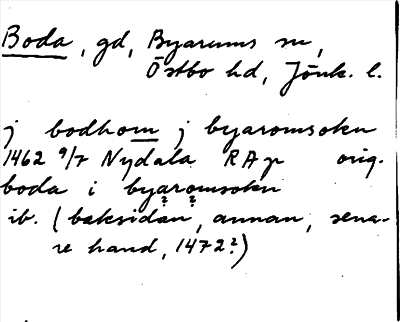 Boda, gd, Byarums sn,
Östbo hd, Jönk. l.
j bodhom j byaromsokn
1462 9/7 Nydala RAp orig.
boda i byaromsokn
ib. (baksidan, annan, sena-
re hand, 1472?)